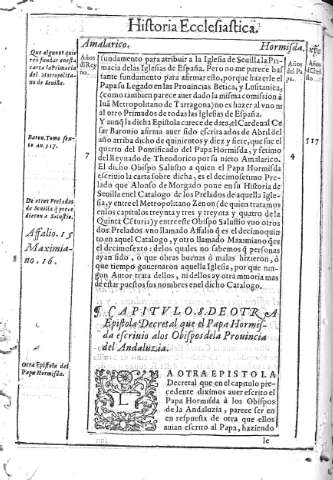 Historia Ecclesiastica.
Amalarico.
Hormisda.
Que algunos quie
ren fundar en esta
carta la Primacia
del Metropolita-
no de Sevilla.
Años
del Rey
no.
7
Baron. Tomo sex-
to an. 517.
De otros Prelados
de Sevilla q̃ prece
dieron a Salustio.
Assalio. 15
Maximia-
no. 16.
Otra Epistola del
Papa Hormisda.
Años
del Pa
pa.
4
517
fundamento para atribuir a la Iglesia de Sevilla la Pri
macia de las Iglesias de España. Pero no me parece bas
tante fundamento para afirmar esto, porque hazerle el
Papa su Legado en las Provincias Betica, y Lusitania,
(como tambien parece aver dado la misma comission à
Iuã Metropolitano de Tarragona) no es hazer al vno ni
al otro Primados de todas las Iglesias de España.
Y aunq̃ la dicha Epistola carece de data, el Cardenal Ce
sar Baronio afirma auer sido escrita a dos de Abril del
año arriba dicho de quinientos y diez y siete, que fue el
quarto del Pontificado del Papa Hormisda, y setimo
del Reynado de Theodorico por su nieto Amalarico.
El dicho Obispo Salustio a quien el Papa Hormisda
escrivio la carta sobre dicha, es el decimosetimo Pre-
lado que Alonso de Morgado pone en su Historia de
Sevilla en el Catalogo de los Prelados de aquella Igle-
sia, y entre el Metropolitano Zenon (de quien tratamos
en los capitulos treynta y tres y treynta y quatro de la
Quinta Cẽturia) y entre este Obispo Salustio vuo otros
dos Prelados vno llamado Assalio q̃ es el decimoquin
to en aquel Catalogo, y otro llamado Maximiano q̃ es
el decimosexto: delos quales no sabemos q̃ personas
ayan sido, ò que obras buenas ó malas hizieron, ó
que tiempo governaron aquella Iglesia, por que nin-
gun Autor trata dellos, ni dellos ay otra memoria mas
de estar puestos sus nombres en el dicho Catalogo.
¶ CAPITVLO. 8. DE OTRA
Epistola Decretal que el Papa Hormis-
da escrivio a los Obispos de la Provincia
del Andaluzia.
LA OTRA EPISTOLA
Decretal que en el capitulo pre
cedente diximos auer escrito el
Papa Hormisda à los Obispos
de la Andaluzia, parece ser en
en respuesta de otra que ellos
auian escrito al Papa, haziendo
le